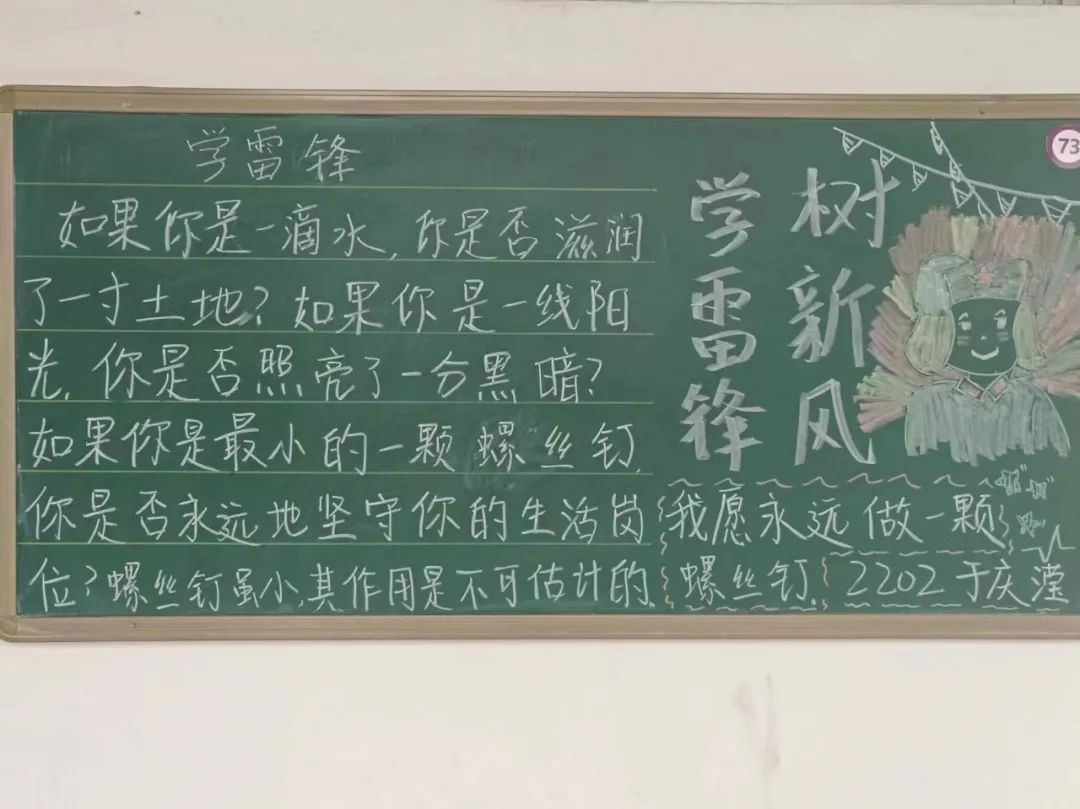 学雷锋
如果你是一滴水,你是否滋润
了一寸土地?如果你是一线阳
光,你是否照亮了一分黑暗?
如果你是最小的一颗螺丝钉,
你是否永远地坚守你的生活岗
位?螺丝钉虽小,其作用是不可估计的.
学雷锋
树新风
我愿永远做一颗
螺丝钉.
2202于庆滢
73